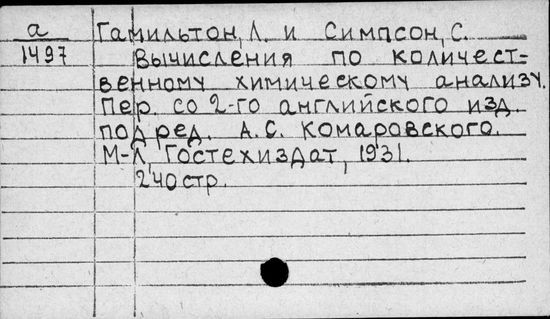 а
1497
Гамильтон, Л. и Симпсон, С.
Вычисления по количест=
венному химическому анализу.
Пер. со 2-го английского изд.
под ред. А.С. Комаровского.
М-Л. Гостехиздат, 1931.
240 стр.